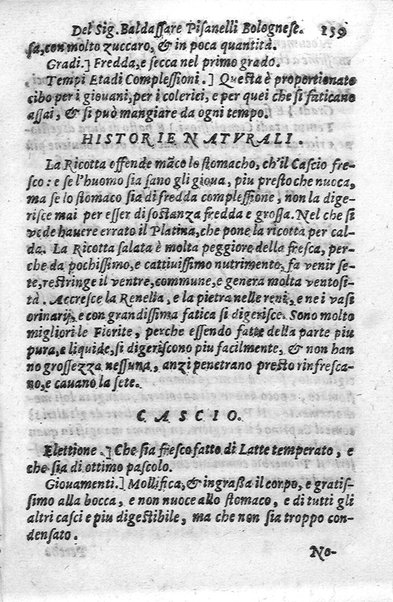 Del Sig. Baldassare Pisanelli Bolognese. 159
sa, con molto zuccaro, & in poca quantità.
Gradi.] Fredda, e secca nel primo grado.
Tempi Etadi Complessioni.] Questa è proportionato
cibo per i giovani, per i colerici, e per quei che si faticano
assai, & si può mangiare da ogni tempo.
HISTORIE NATVRALI.
La Ricotta offende māco lo stomacho, ch'il Cascio fre-
sco: e se l'huomo sia sano gli gioua, piu presto che nuoca,
ma se lo stomaco sia di fredda complessione, non la dige-
risce mai per esser di sostanza fredda e grossa. Nel che si
vede hauere errato il Platina, che pone la ricotta per cal-
da. La Ricotta salata è molta peggiore della fresca, per-
che da pochissimo, e cattiuissimo nutrimento, fa venir se-
te, restringe il ventre, commune, e genera molta ventosi-
tà. Accresce la Renella, e la pietra nelle reni, e nei vasi
orinarij, e con grandissima fatica si digerisce. Sono molto
migliori le Fiorite, perche essendo fatte della parte piu
pura, e liquide, si digeriscono piu facilmente, & non han
no grossezza nessuna, anzi penetrano presto rinfresca-
no, e cauano la sete.
CASCIO.
Elettione.] Che sia fresco fatto di Latte temperato, e
che sia di ottimo pascolo.
Giouamenti.] Mollifica, & ingrassa il corpo, e gratis-
simo alla bocca, e non nuoce allo stomaco, e di tutti gli
altri casci e piu digestibile, ma che non sia troppo con-
densato.
No-